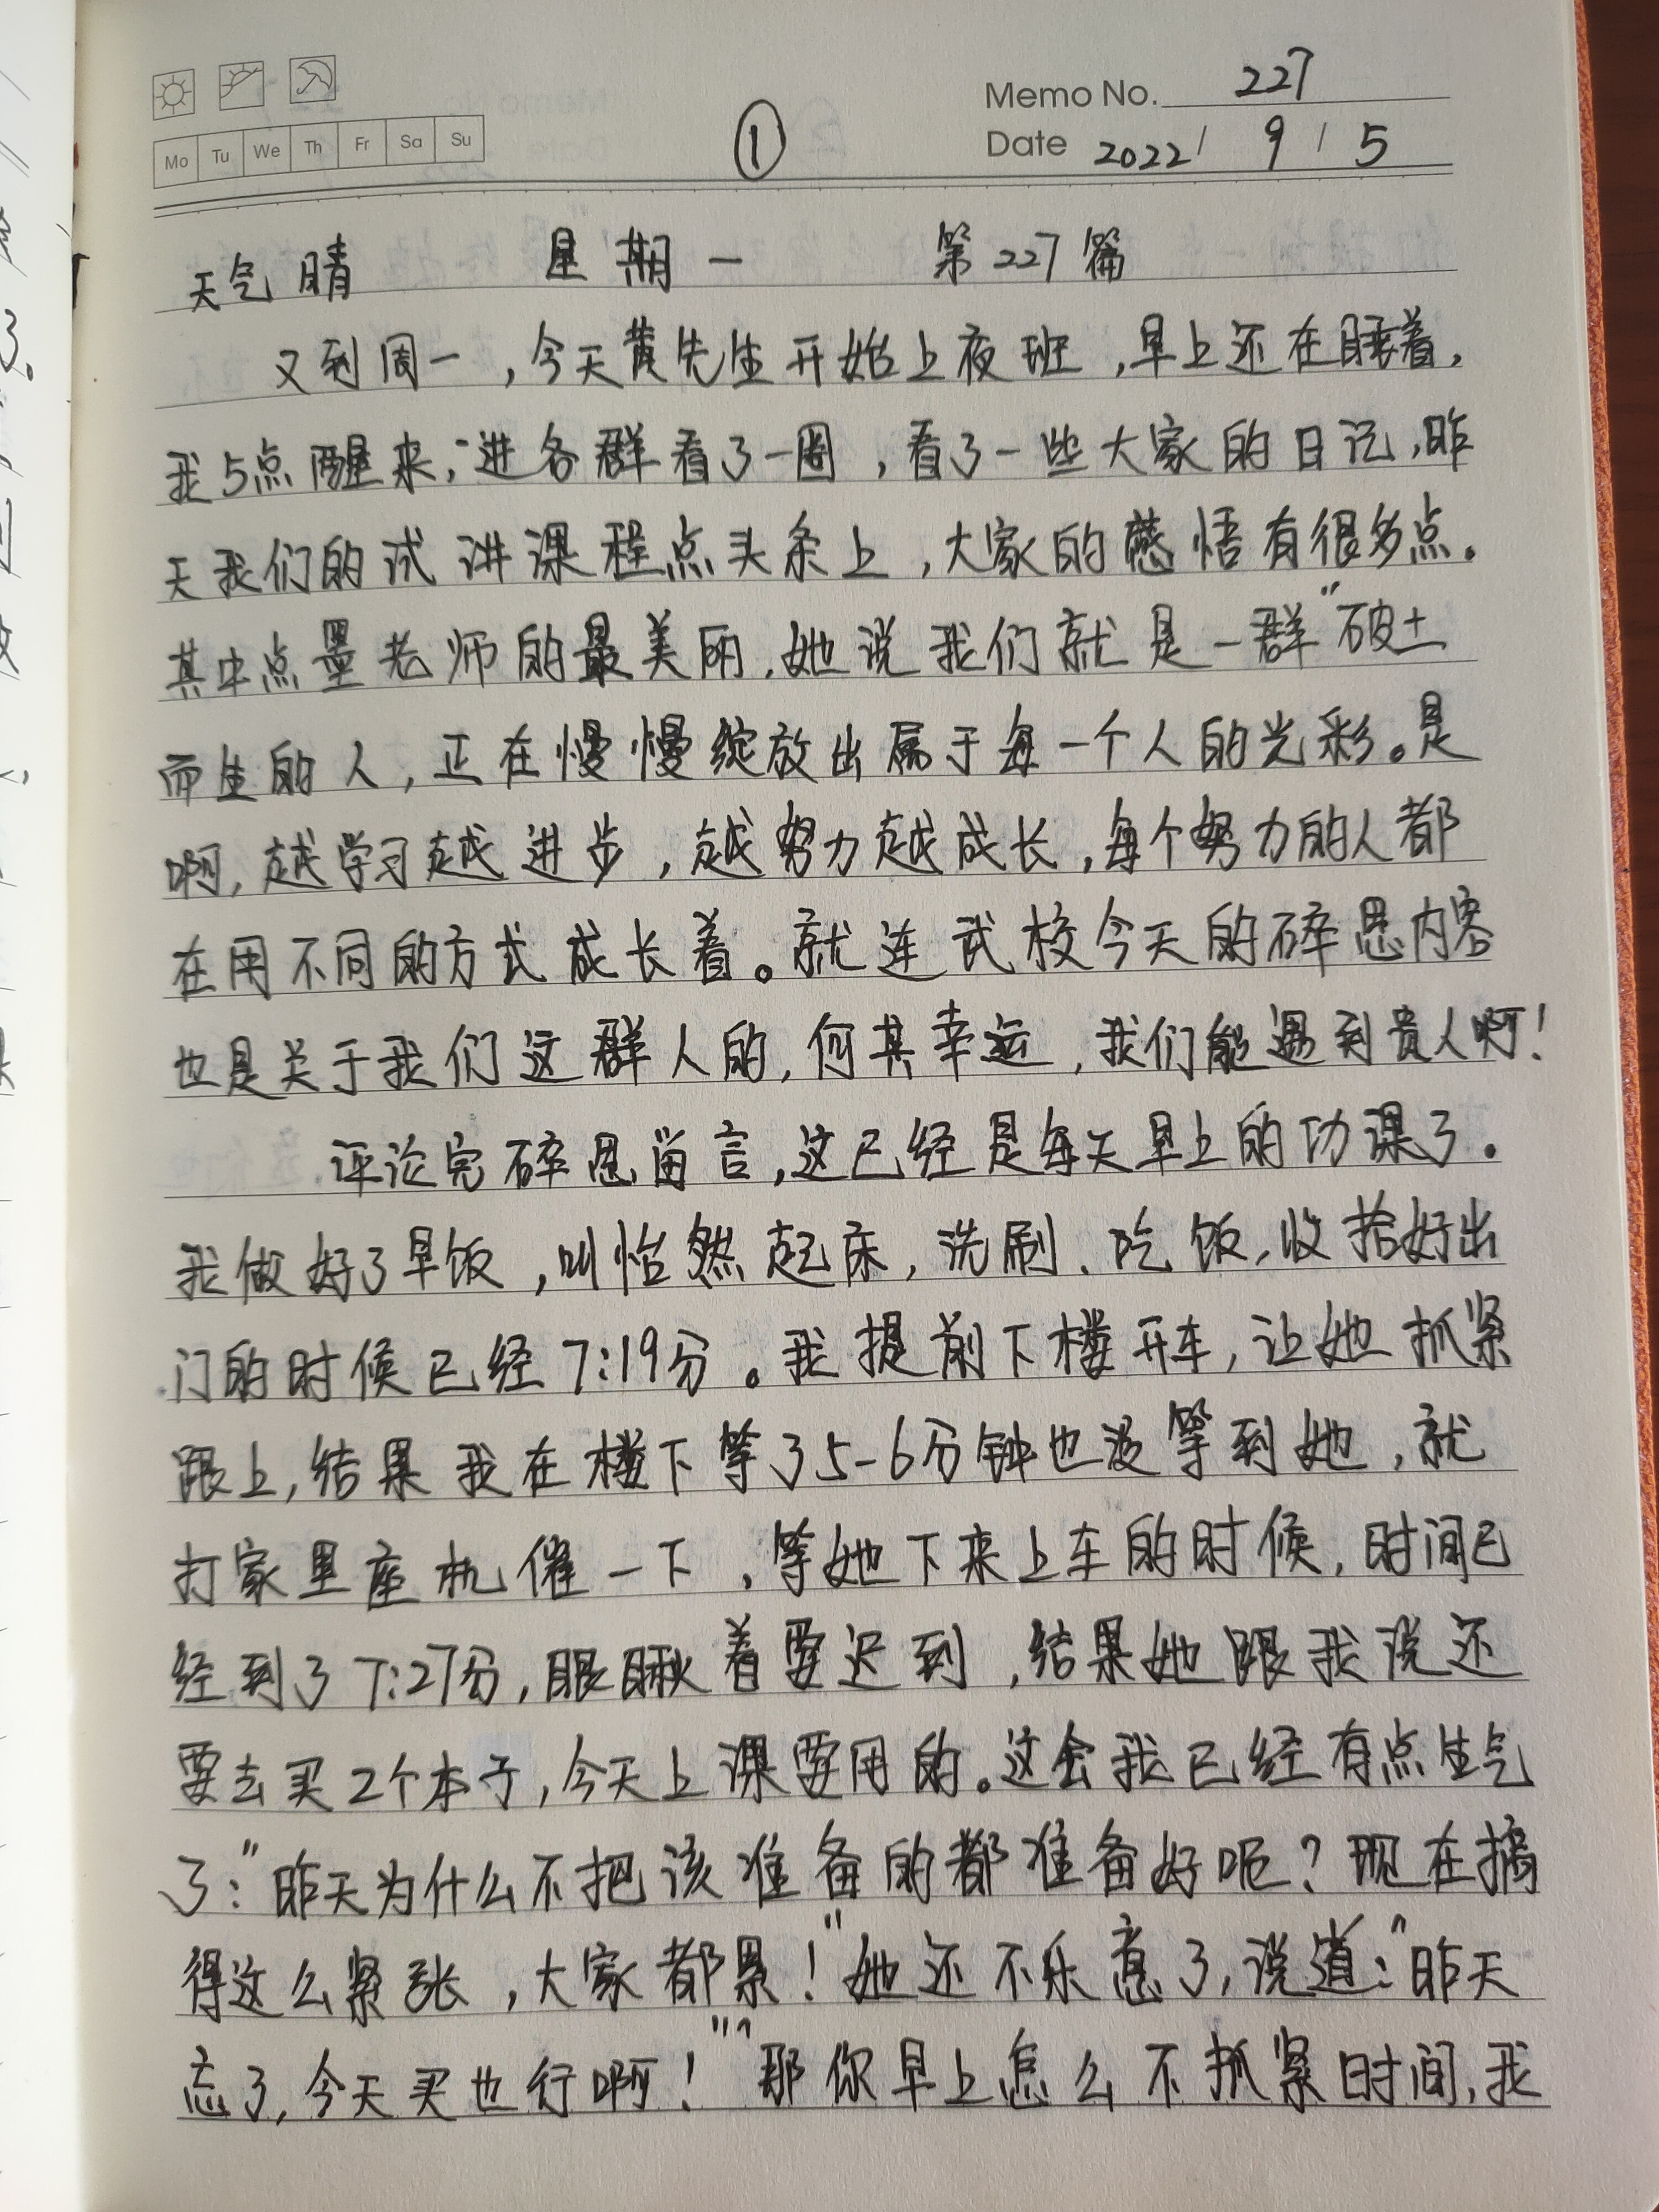 Memo No. 227
Mo Tu We Th Fr Sa Su
①
Date 2022 / 9 / 5
天气晴 星期一 第227篇
又到周一，今天黄先生开始上夜班，早上还在睡着，
我5点醒来，进各群看了一圈，看了一些大家的日记，昨
天我们的试讲课程点头条上，大家的感悟有很多点。
其中点墨老师的最美丽，她说我们就是一群"破土
而生的人，正在慢慢绽放出属于每一个人的光彩。是
啊，越学习越进步，越努力越成长，每个努力的人都
在用不同的方式成长着。就连武校今天的碎思内容
也是关于我们这群人的，何其幸运，我们能遇到贵人啊！
评论完碎思留言，这已经是每天早上的功课了。
我做好了早饭，叫怡然起床，洗刷、吃饭，收拾好出
门的时候已经7:19分。我提前下楼开车，让她抓紧
跟上，结果我在楼下等了5-6分钟也没等到她，就
打家里座机催一下，等她下来上车的时候，时间已
经到了7:27分，眼瞅着要迟到，结果她跟我说还
要去买2个本子，今天上课要用的。这会我已经有点生气
了："昨天为什么不把该准备的都准备好呢？现在搞
得这么紧张，大家都累！"她还不乐意了，说道："昨天
忘了，今天买也行啊！""那你早上怎么不抓紧时间，我